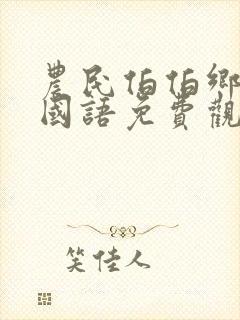 農民伯伯鄉
國語免費觀
笑佳人